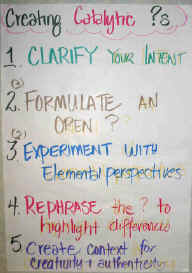 Creating Catalytic ?s
1. CLARIFY YOUR INTENT
(3)
2. FORMULATE AN
OPEN ?
(2)
3. EXPERIMENT WITH
Elemental perspectives
4. REPHRASE the ? to
highlight differences
5. Create context for
creativity +